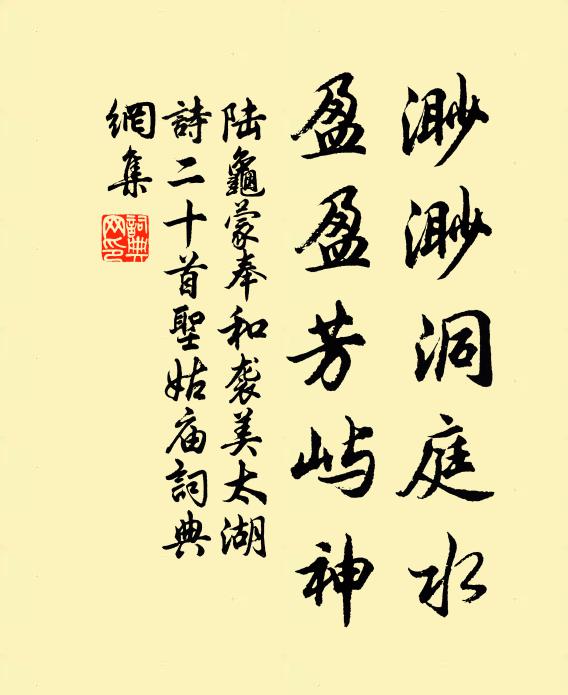 渺渺洞庭水
盈盈芳屿神
陆龜蒙奉和袭美太湖
詩二十首聖姑庙詞典
網集
詞典
网印